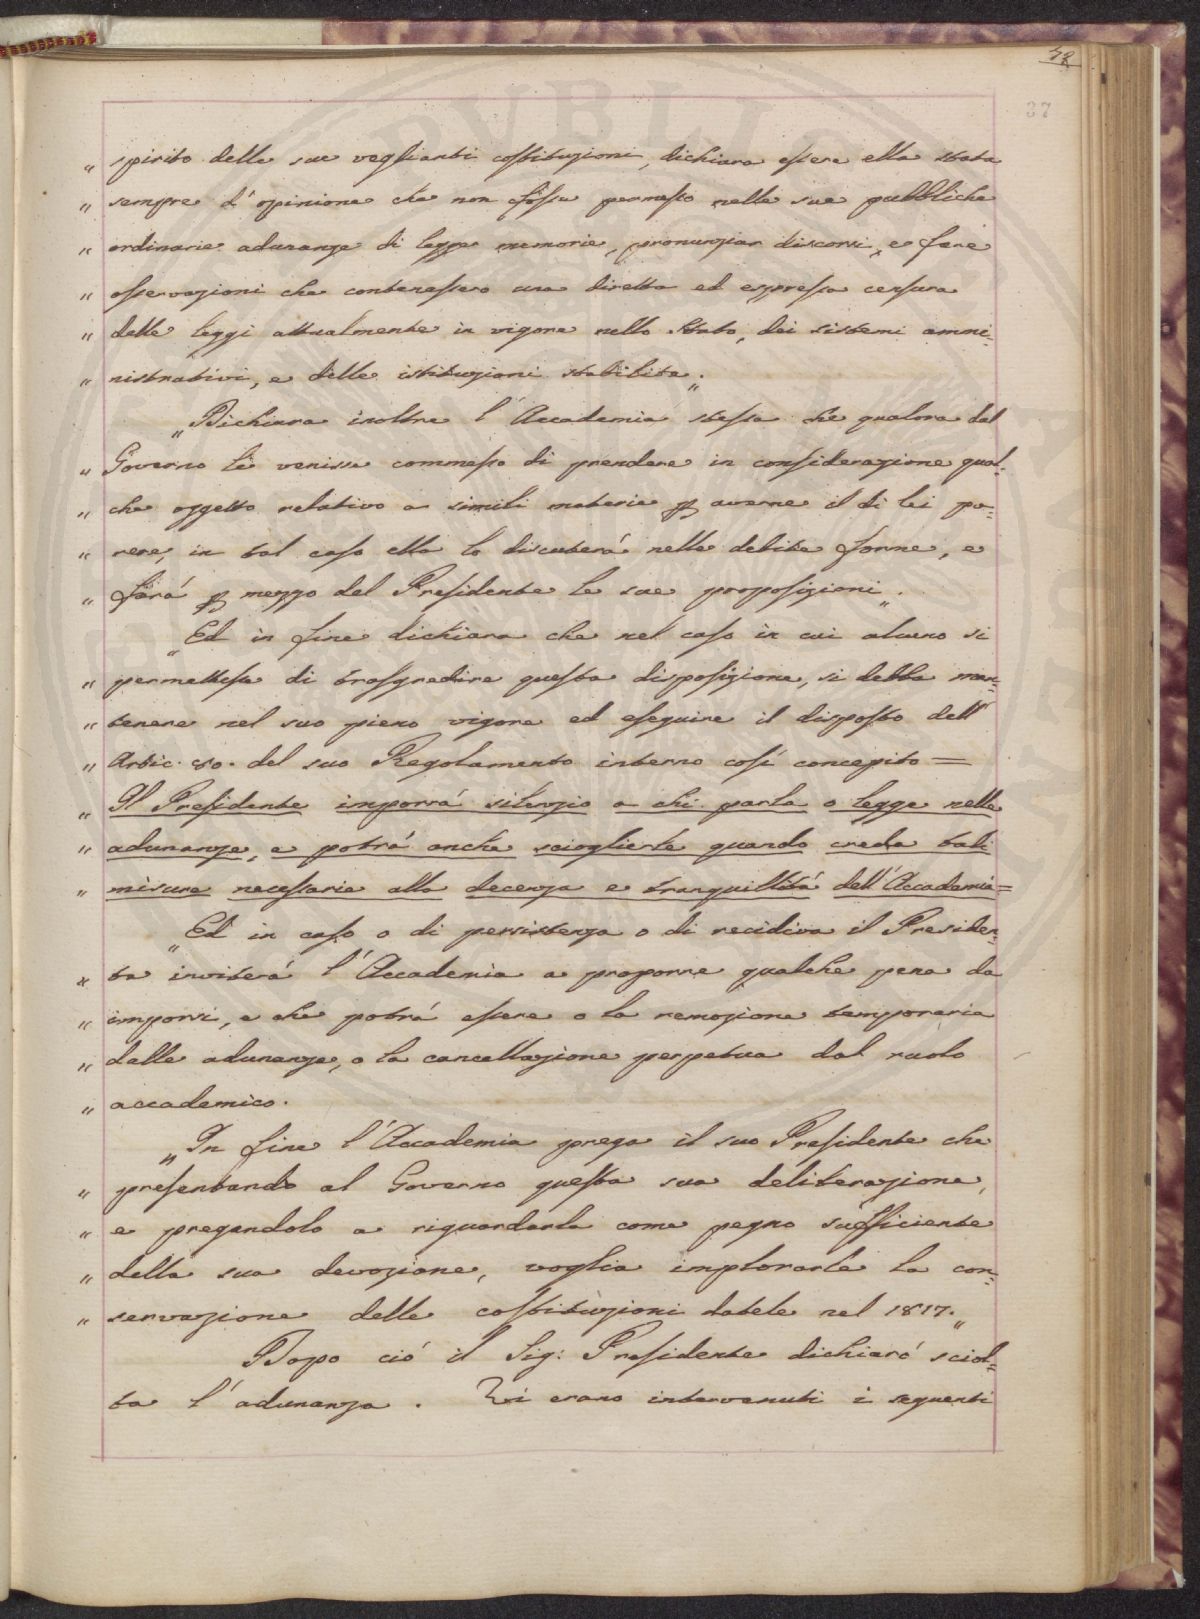 38
37
„ spirito delle sue veglianti costituzioni, dichiara essere ella stata
„ sempre d'opinione che non fosse permesso nelle sue pubbliche
„ ordinarie adunanze di legger memorie, pronunziar discorsi, e fare
„ osservazioni che contenessero una diretta ed espressa censura
„ delle leggi attualmente in vigore nello Stato, dei sistemi ammi-
„ nistrativi, e delle istituzioni stabilite.„
„Dichiara inoltre l'Accademia stessa che qualora dal
„ Governo le venisse commesso di prendere in considerazione qual-
„ che oggetto relativo a simili materie per averne il di lei pa-
„ rere, in tal caso ella lo discuterá nelle debite forme, e
„ fará per mezzo del Presidente le sue proposizioni„.
„Ed in fine dichiara che nel caso in cui alcuno si
„ permettesse di trasgredire questa disposizione, si debba man-
„ tenere nel suo pieno vigore ed eseguire il disposto dell'
„ Artic. 80. del suo Regolamento interno così concepito =
„ Il Presidente imporrá silenzio a chi parla o legge nelle
„ adunanze, e potrá anche scioglierle quando creda tali
„ misure necessarie alla decenza e tranquillitá dell'Accademia=
„Ed in caso o di persistenza o di recidiva il Presiden-
„ te inviterá l'Accademia a proporre qualche pena da
„ imporsi, e che potrá essere o la remozione temporaria
„ dalle adunanze, o la cancellazione perpetua dal ruolo
„ accademico.
„In fine l'Accademia prega il suo Presidente che
„ presentando al Governo questa sua deliberazione,
„ e pregandolo a riguardarla come pegno sufficiente
„ della sua devozione, voglia implorarle la con-
„ servazione delle costituzioni datele nel 1817.„
Dopo ció il Sig: Presidente dichiaró sciol-
ta l'adunanza. Vi erano intervenuti i seguenti